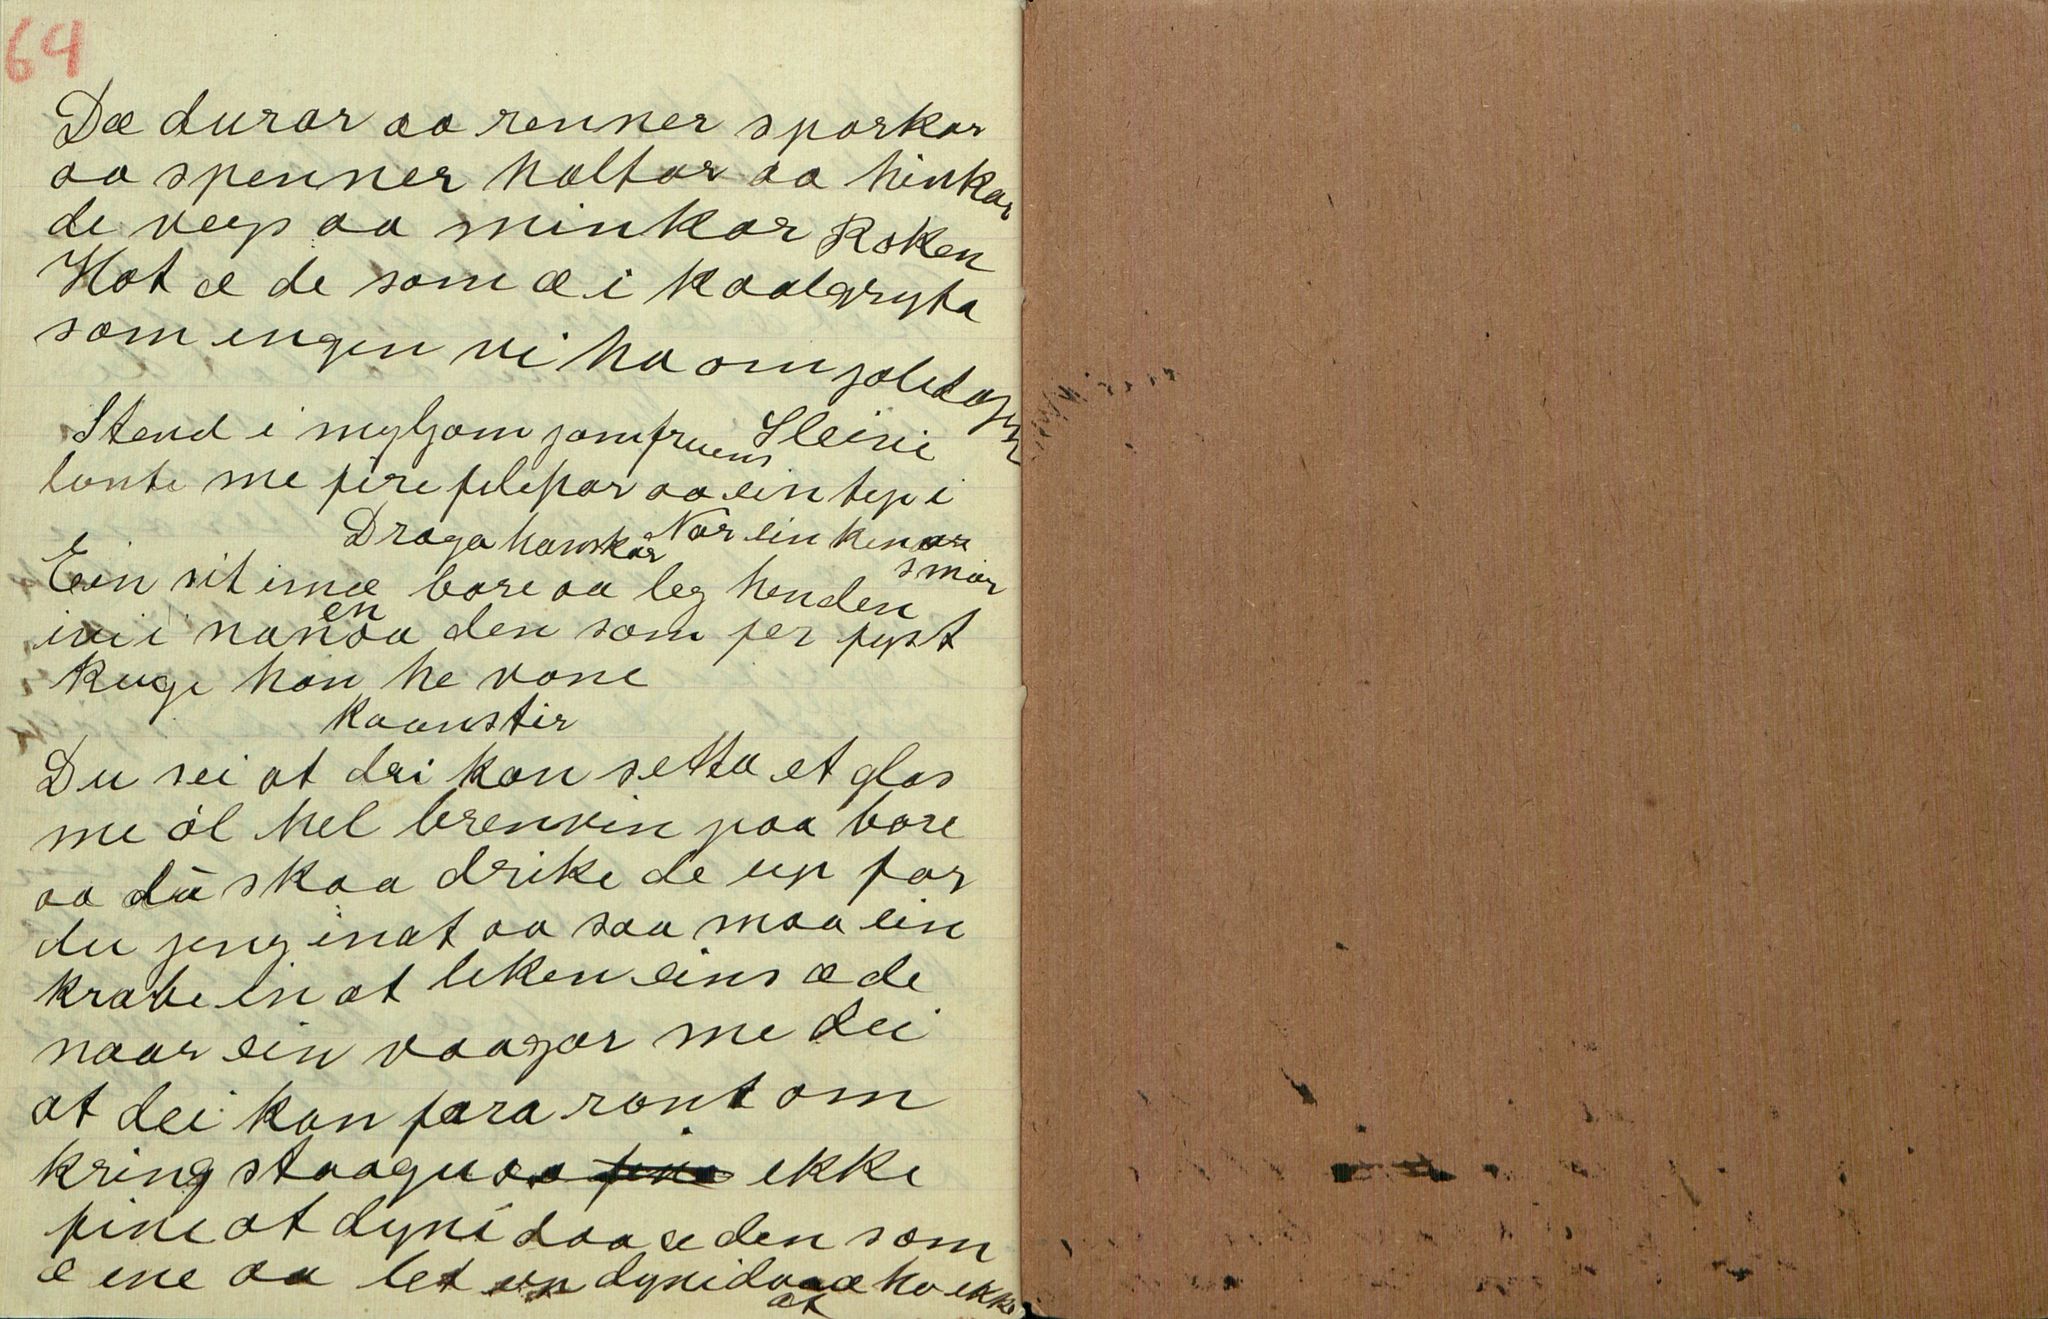 64
Dæ durar aa renner sparkar
aa spenner haltar aa hinkar
de veks aa minkar Røken
Hot æ de som æ i kaalgryta
som engen vi ha om joledagen
Stend i myljom jomfruens Sleivi
lonte me fire filepar aa ein tep i
Draga hanskar Nar ein kenar
smør
Ein sit imæ bore aa leg henden
en
ivi i nanoa den som fer fyst
kuge han he vone
kaanstir
Du sei at dei kan setta et glas
me øl hel brenvin paa bore
aa dú skaa drike de up far
du jeng inat aa saa maa ein
krabe in at leken eins æ de
naar ein vaagar me dei
at dei kan fara ront om
kring staagu aa ekke
fine at dyni daa æ den som
æ ine aa let dyni daa æ ho ekke
at